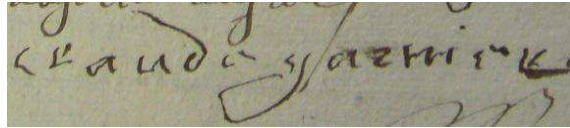 claude garnier